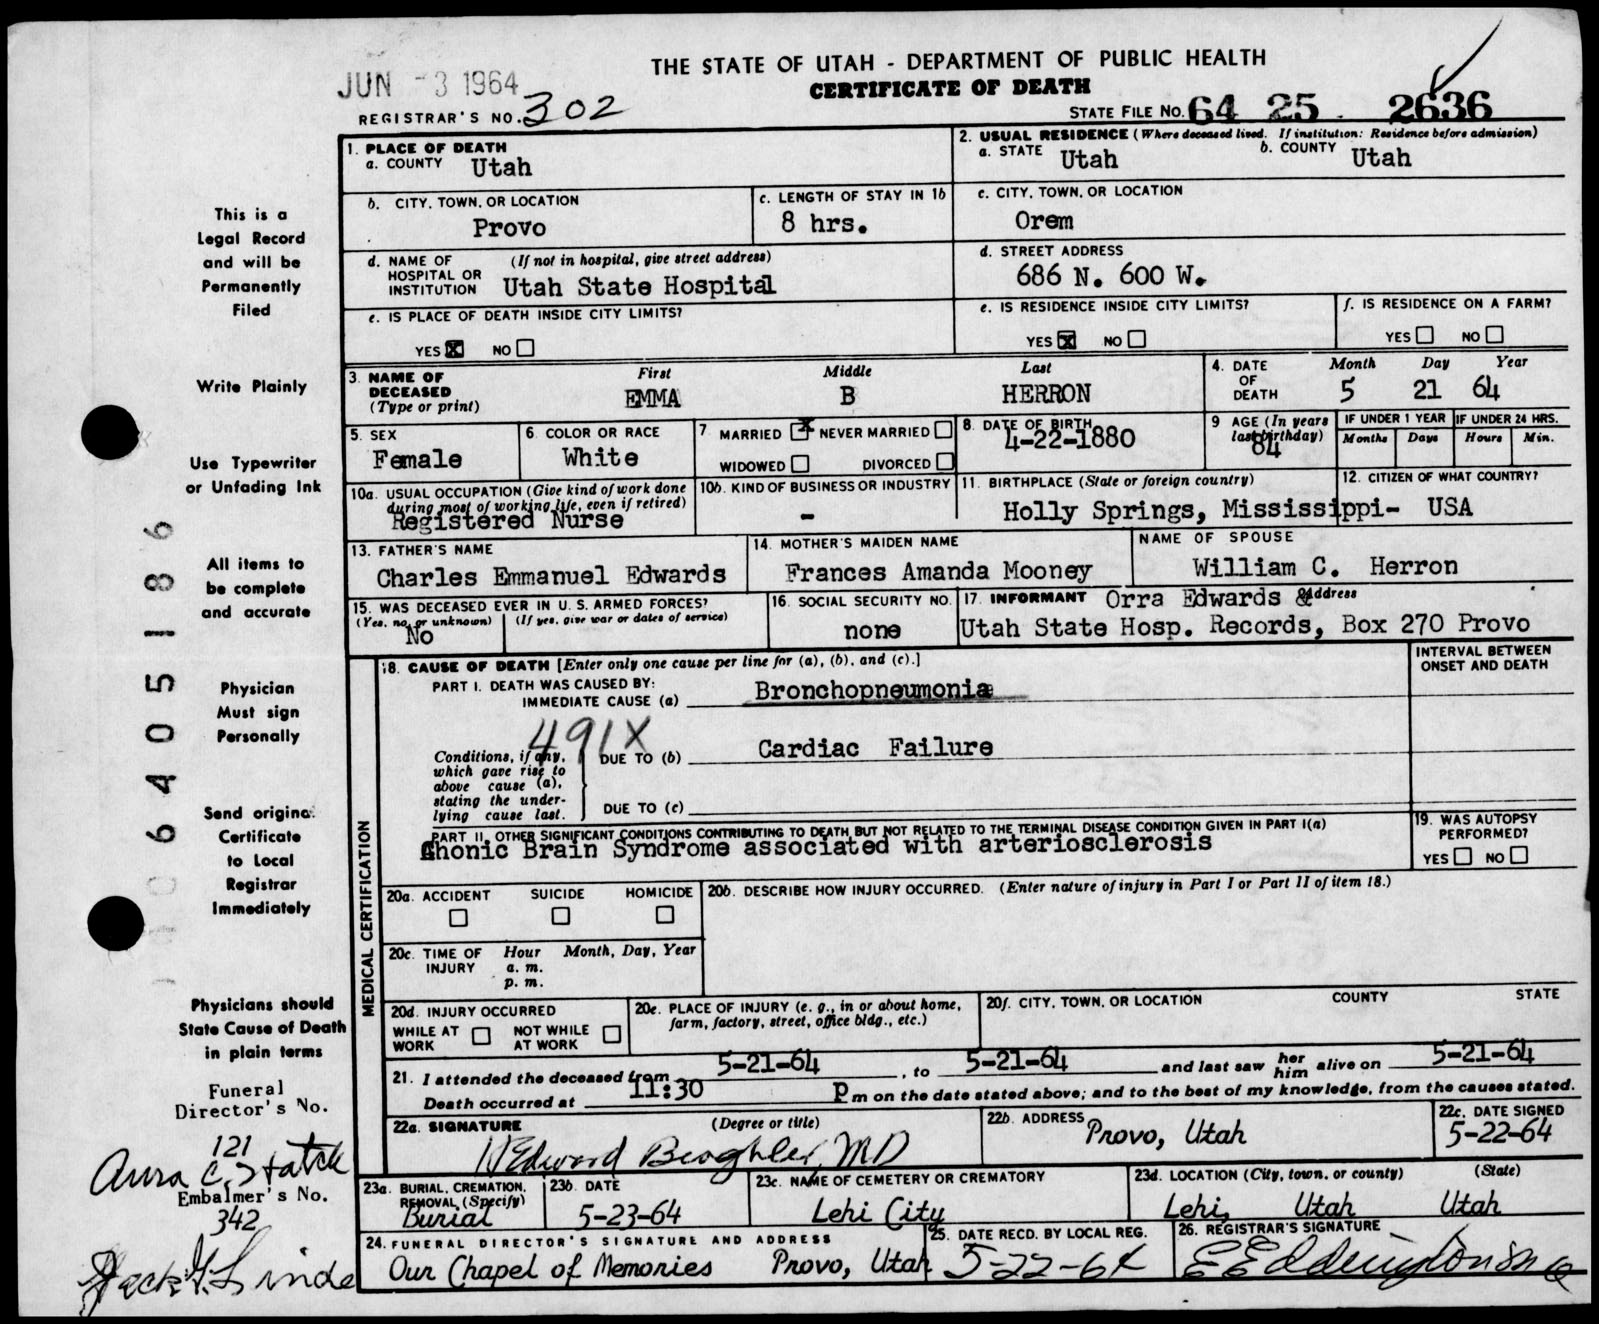 THE STATE OF UTAH - DEPARTMENT OF PUBLIC HEALTH
JUN -3 1964
CERTIFICATE OF DEATH
REGISTRAR'S NO. 302
STATE FILE NO. 64 25 2636
1. PLACE OF DEATH
a. COUNTY Utah
2. USUAL RESIDENCE (Where deceased lived. If institution: Residence before admission)
a. STATE Utah b. COUNTY Utah
b. CITY, TOWN, OR LOCATION
Provo
c. LENGTH OF STAY IN 1b
8 hrs.
c. CITY, TOWN, OR LOCATION
Orem
d. NAME OF HOSPITAL OR INSTITUTION (If not in hospital, give street address)
Utah State Hospital
d. STREET ADDRESS
686 N. 600 W.
e. IS PLACE OF DEATH INSIDE CITY LIMITS?
YES X NO
e. IS RESIDENCE INSIDE CITY LIMITS?
YES X NO
f. IS RESIDENCE ON A FARM?
YES NO
3. NAME OF DECEASED (Type or print)
First Middle Last
EMMA B HERRON
4. DATE OF DEATH
Month Day Year
5 21 64
5. SEX
Female
6. COLOR OR RACE
White
7. MARRIED X NEVER MARRIED
WIDOWED DIVORCED
8. DATE OF BIRTH
4-22-1880
9. AGE (In years last birthday)
84
IF UNDER 1 YEAR IF UNDER 24 HRS.
Months Days Hours Min.
10a. USUAL OCCUPATION (Give kind of work done during most of working life, even if retired)
Registered Nurse
10b. KIND OF BUSINESS OR INDUSTRY
-
11. BIRTHPLACE (State or foreign country)
Holly Springs, Mississippi-
12. CITIZEN OF WHAT COUNTRY?
USA
13. FATHER'S NAME
Charles Emmanuel Edwards
14. MOTHER'S MAIDEN NAME
Frances Amanda Mooney
NAME OF SPOUSE
William C. Herron
15. WAS DECEASED EVER IN U. S. ARMED FORCES?
(Yes, no, or unknown) (If yes, give war or dates of service)
No
16. SOCIAL SECURITY NO.
none
17. INFORMANT Orra Edwards & Address
Utah State Hosp. Records, Box 270 Provo
MEDICAL CERTIFICATION
18. CAUSE OF DEATH [Enter only one cause per line for (a), (b), and (c).]
INTERVAL BETWEEN ONSET AND DEATH
PART I. DEATH WAS CAUSED BY:
IMMEDIATE CAUSE (a) Bronchopneumonia
491X
Conditions, if any, which gave rise to above cause (a), stating the underlying cause last.
DUE TO (b) Cardiac Failure
DUE TO (c)
PART II. OTHER SIGNIFICANT CONDITIONS CONTRIBUTING TO DEATH BUT NOT RELATED TO THE TERMINAL DISEASE CONDITION GIVEN IN PART I(a)
Chonic Brain Syndrome associated with arteriosclerosis
19. WAS AUTOPSY PERFORMED?
YES NO
20a. ACCIDENT SUICIDE HOMICIDE
20b. DESCRIBE HOW INJURY OCCURRED. (Enter nature of injury in Part I or Part II of item 18.)
20c. TIME OF INJURY Hour Month, Day, Year
a. m.
p. m.
20d. INJURY OCCURRED
WHILE AT WORK NOT WHILE AT WORK
20e. PLACE OF INJURY (e. g., in or about home, farm, factory, street, office bldg., etc.)
20f. CITY, TOWN, OR LOCATION COUNTY STATE
21. I attended the deceased from 5-21-64, to 5-21-64 and last saw her him alive on 5-21-64
Death occurred at 11:30 P m on the date stated above; and to the best of my knowledge, from the causes stated.
22a. SIGNATURE (Degree or title)
Edward Beaghler, MD
22b. ADDRESS
Provo, Utah
22c. DATE SIGNED
5-22-64
23a. BURIAL, CREMATION, REMOVAL (Specify)
Burial
23b. DATE
5-23-64
23c. NAME OF CEMETERY OR CREMATORY
Lehi City
23d. LOCATION (City, town, or county) (State)
Lehi, Utah Utah
24. FUNERAL DIRECTOR'S SIGNATURE AND ADDRESS
Our Chapel of Memories Provo, Utah
25. DATE RECD. BY LOCAL REG.
5-22-64
26. REGISTRAR'S SIGNATURE
This is a
Legal Record
and will be
Permanently
Filed
Write Plainly
Use Typewriter
or Unfading Ink
All items to
be complete
and accurate
Physician
Must sign
Personally
Send original
Certificate
to Local
Registrar
Immediately
Physicians should
State Cause of Death
in plain terms
Funeral
Director's No.
121
Embalmer's No.
342
6405186